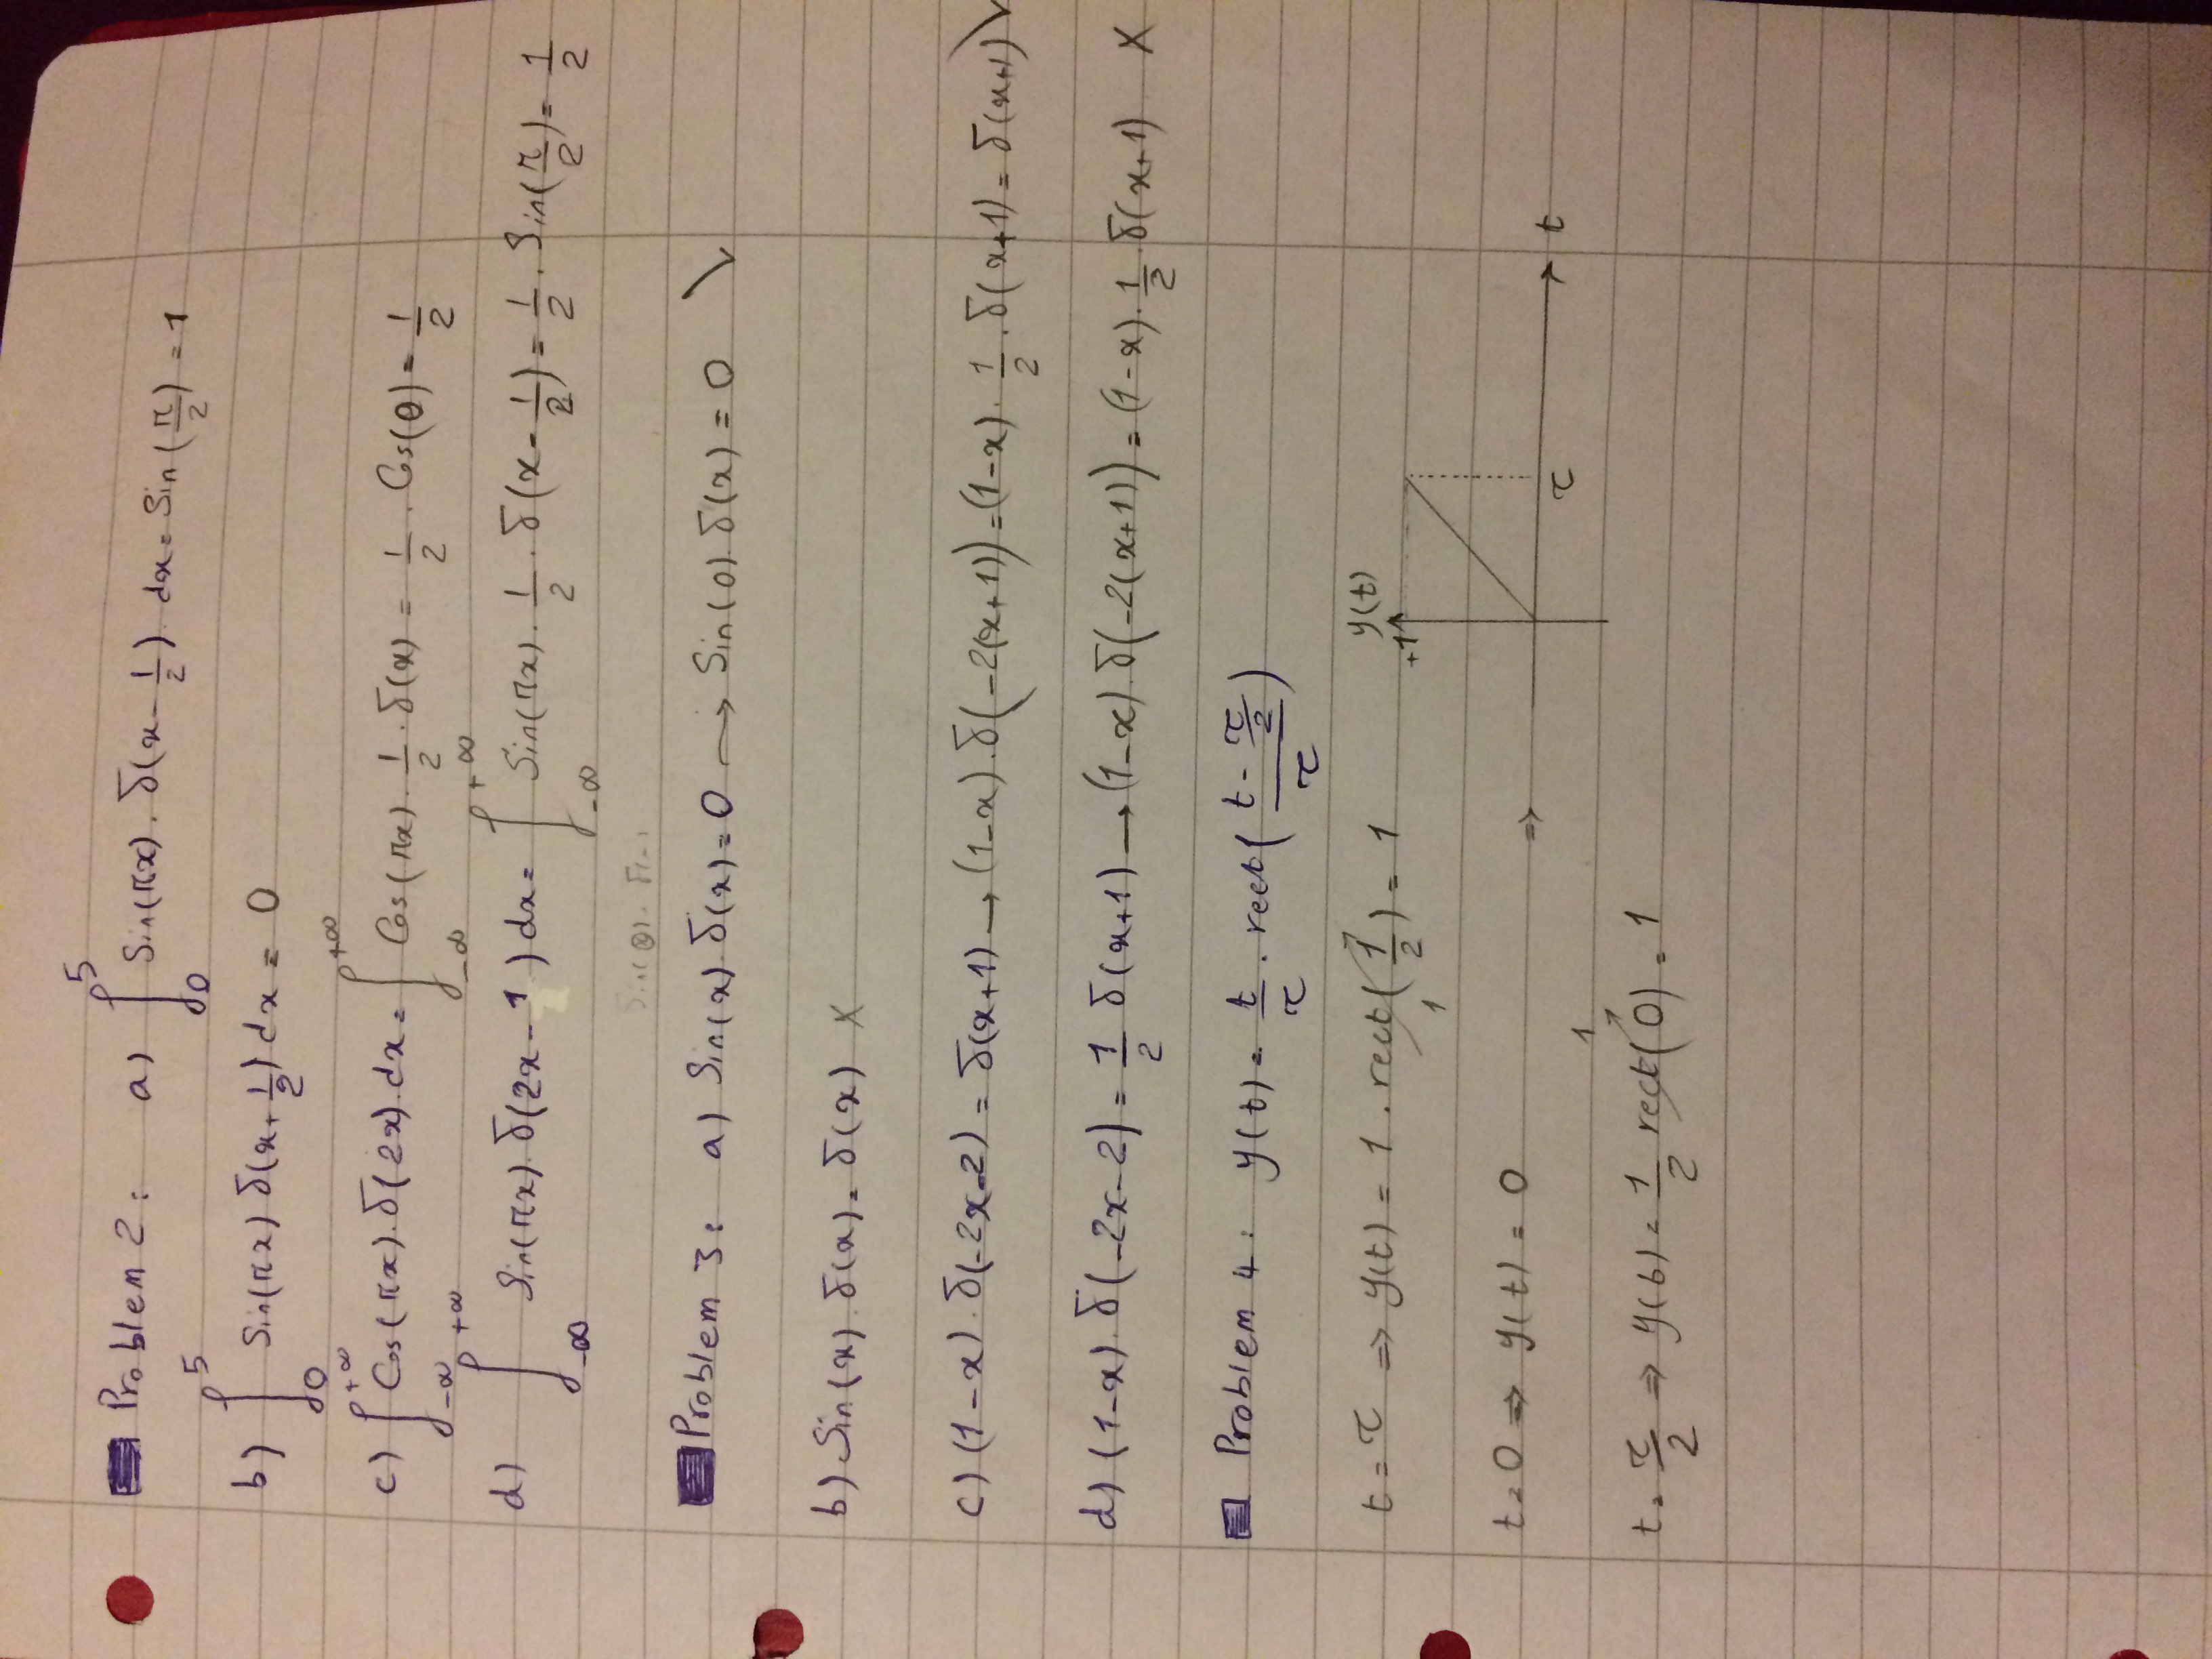 Problem 2: a) ∫₀⁵ Sin(πx). δ(x-1/2). dx = Sin(π/2) = 1
b) ∫₀⁵ Sin(πx) δ(x+1/2) dx = 0
c) ∫_{-∞}^{+∞} Cos(πx). δ(2x). dx = ∫_{-∞}^{+∞} Cos(πx). 1/2 . δ(x) = 1/2 . Cos(0) = 1/2
d) ∫_{-∞}^{+∞} Sin(πx). δ(2x-1) dx = ∫_{-∞}^{+∞} Sin(πx). 1/2 . δ(x-1/2) = 1/2 . Sin(π/2) = 1/2
Problem 3: a) Sin(x). δ(x) = 0 → Sin(0). δ(x) = 0
b) Sin(x). δ(x) = δ(x) X
c) (1-x). δ(-2x-2) = δ(x+1) → (1-x). δ(-2(x+1)) = (1-x). 1/2 . δ(x+1) = δ(x+1)
d) (1-x). δ(-2x-2) = 1/2 δ(x+1) → (1-x). δ(-2(x+1)) = (1-x). 1/2 . δ(x+1) X
Problem 4: y(t) = t/τ . rect((t-τ/2)/τ)
t = τ ⇒ y(t) = 1 . rect(1/2) = 1
1
y(t)
+1
t = 0 ⇒ y(t) = 0 ⇒
τ
t
1
t = τ/2 ⇒ y(t) = 1/2 rect(0) = 1